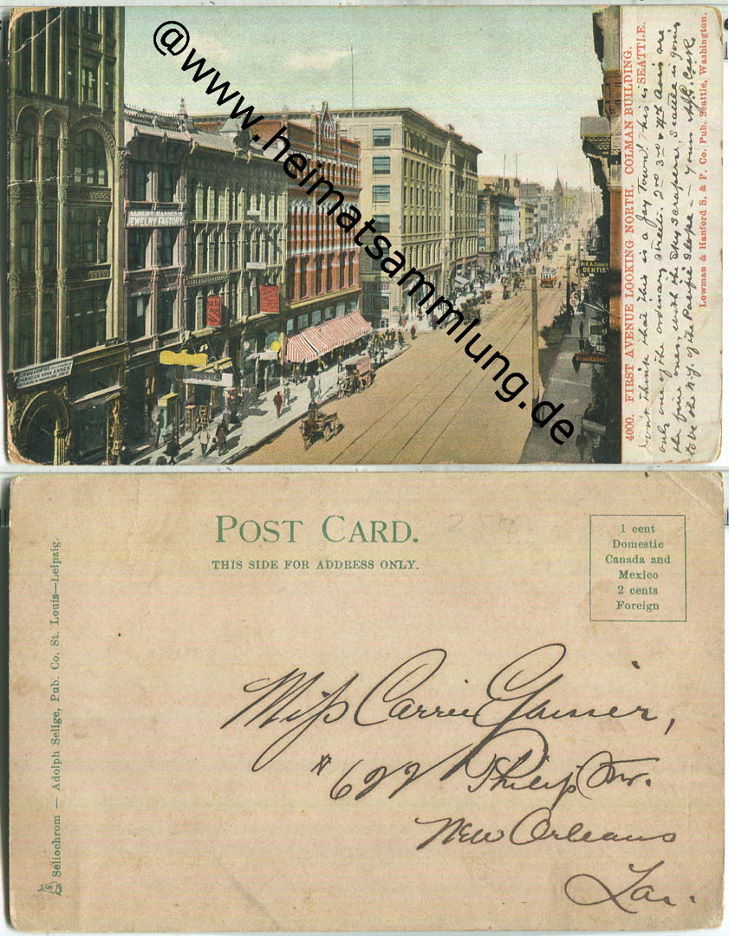 @www.heimatsammlung.de
ALBERT HANSEN'S
JEWELRY FACTORY
DENTIST
4000. FIRST AVENUE LOOKING NORTH. COLMAN BUILDING.
SEATTLE.
Lowman & Hanford S. & P. Co. Pub. Seattle, Washington.
Don't think that this is a Jay town! This is
only one of the ordinary streets. 2nd 3rd & 4th Aves are
the fine ones, with the sky scrapers, Seattle is going
to be the N.Y. of the Pacific slope — Yours
POST CARD.
THIS SIDE FOR ADDRESS ONLY.
1 cent
Domestic
Canada and
Mexico
2 cents
Foreign
Seliochrom — Adolph Selige, Pub. Co. St. Louis—Leipzig.
Miss Carrie
# 622 Philip
New Orleans
La.